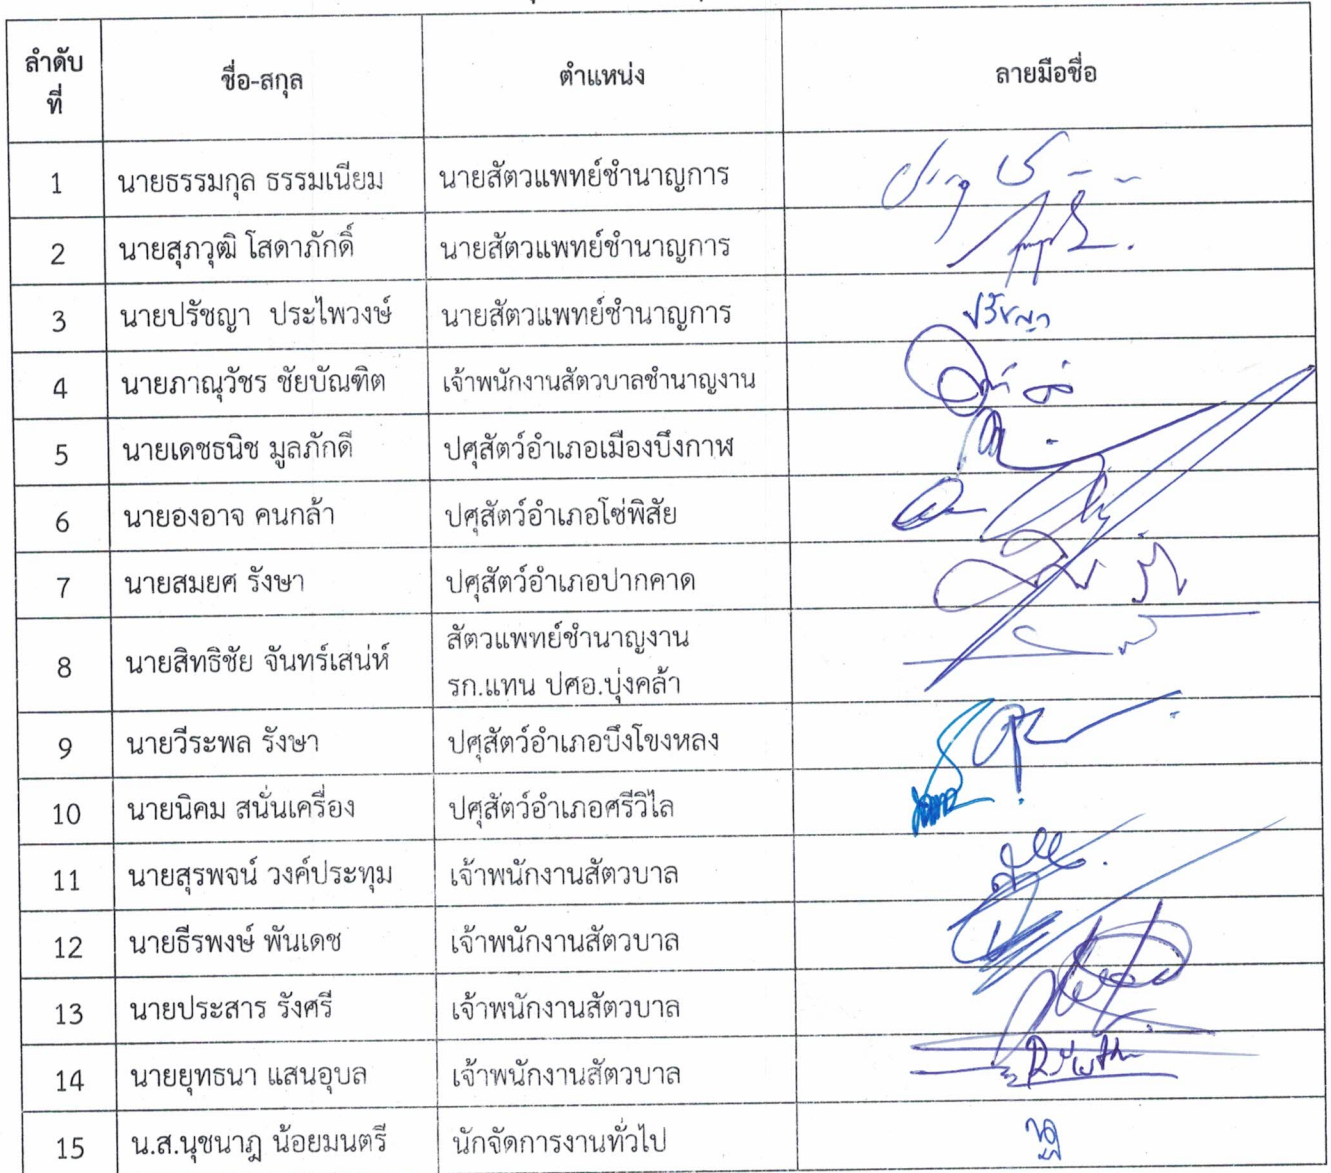 ลำดับ
ที่
ชื่อ-สกุล
ตำแหน่ง
ลายมือชื่อ
1 นายธรรมกุล ธรรมเนียม นายสัตวแพทย์ชำนาญการ
2 นายสุภวุฒิ โสดาภักดิ์ นายสัตวแพทย์ชำนาญการ
3 นายปรัชญา ประไพวงษ์ นายสัตวแพทย์ชำนาญการ ปรัชญา
4 นายภาณุวัชร ชัยบัณฑิต เจ้าพนักงานสัตวบาลชำนาญงาน
5 นายเดชธนิช มูลภักดี ปศุสัตว์อำเภอเมืองบึงกาฬ
6 นายองอาจ คนกล้า ปศุสัตว์อำเภอโซ่พิสัย
7 นายสมยศ รังษา ปศุสัตว์อำเภอปากคาด
8 นายสิทธิชัย จันทร์เสน่ห์ สัตวแพทย์ชำนาญงาน
รก.แทน ปศอ.บุ่งคล้า
9 นายวีระพล รังษา ปศุสัตว์อำเภอบึงโขงหลง
10 นายนิคม สนั่นเครื่อง ปศุสัตว์อำเภอศรีวิไล
11 นายสุรพจน์ วงค์ประทุม เจ้าพนักงานสัตวบาล
12 นายธีรพงษ์ พันเดช เจ้าพนักงานสัตวบาล
13 นายประสาร รังศรี เจ้าพนักงานสัตวบาล
14 นายยุทธนา แสนอุบล เจ้าพนักงานสัตวบาล
15 น.ส.นุชนาฎ น้อยมนตรี นักจัดการงานทั่วไป